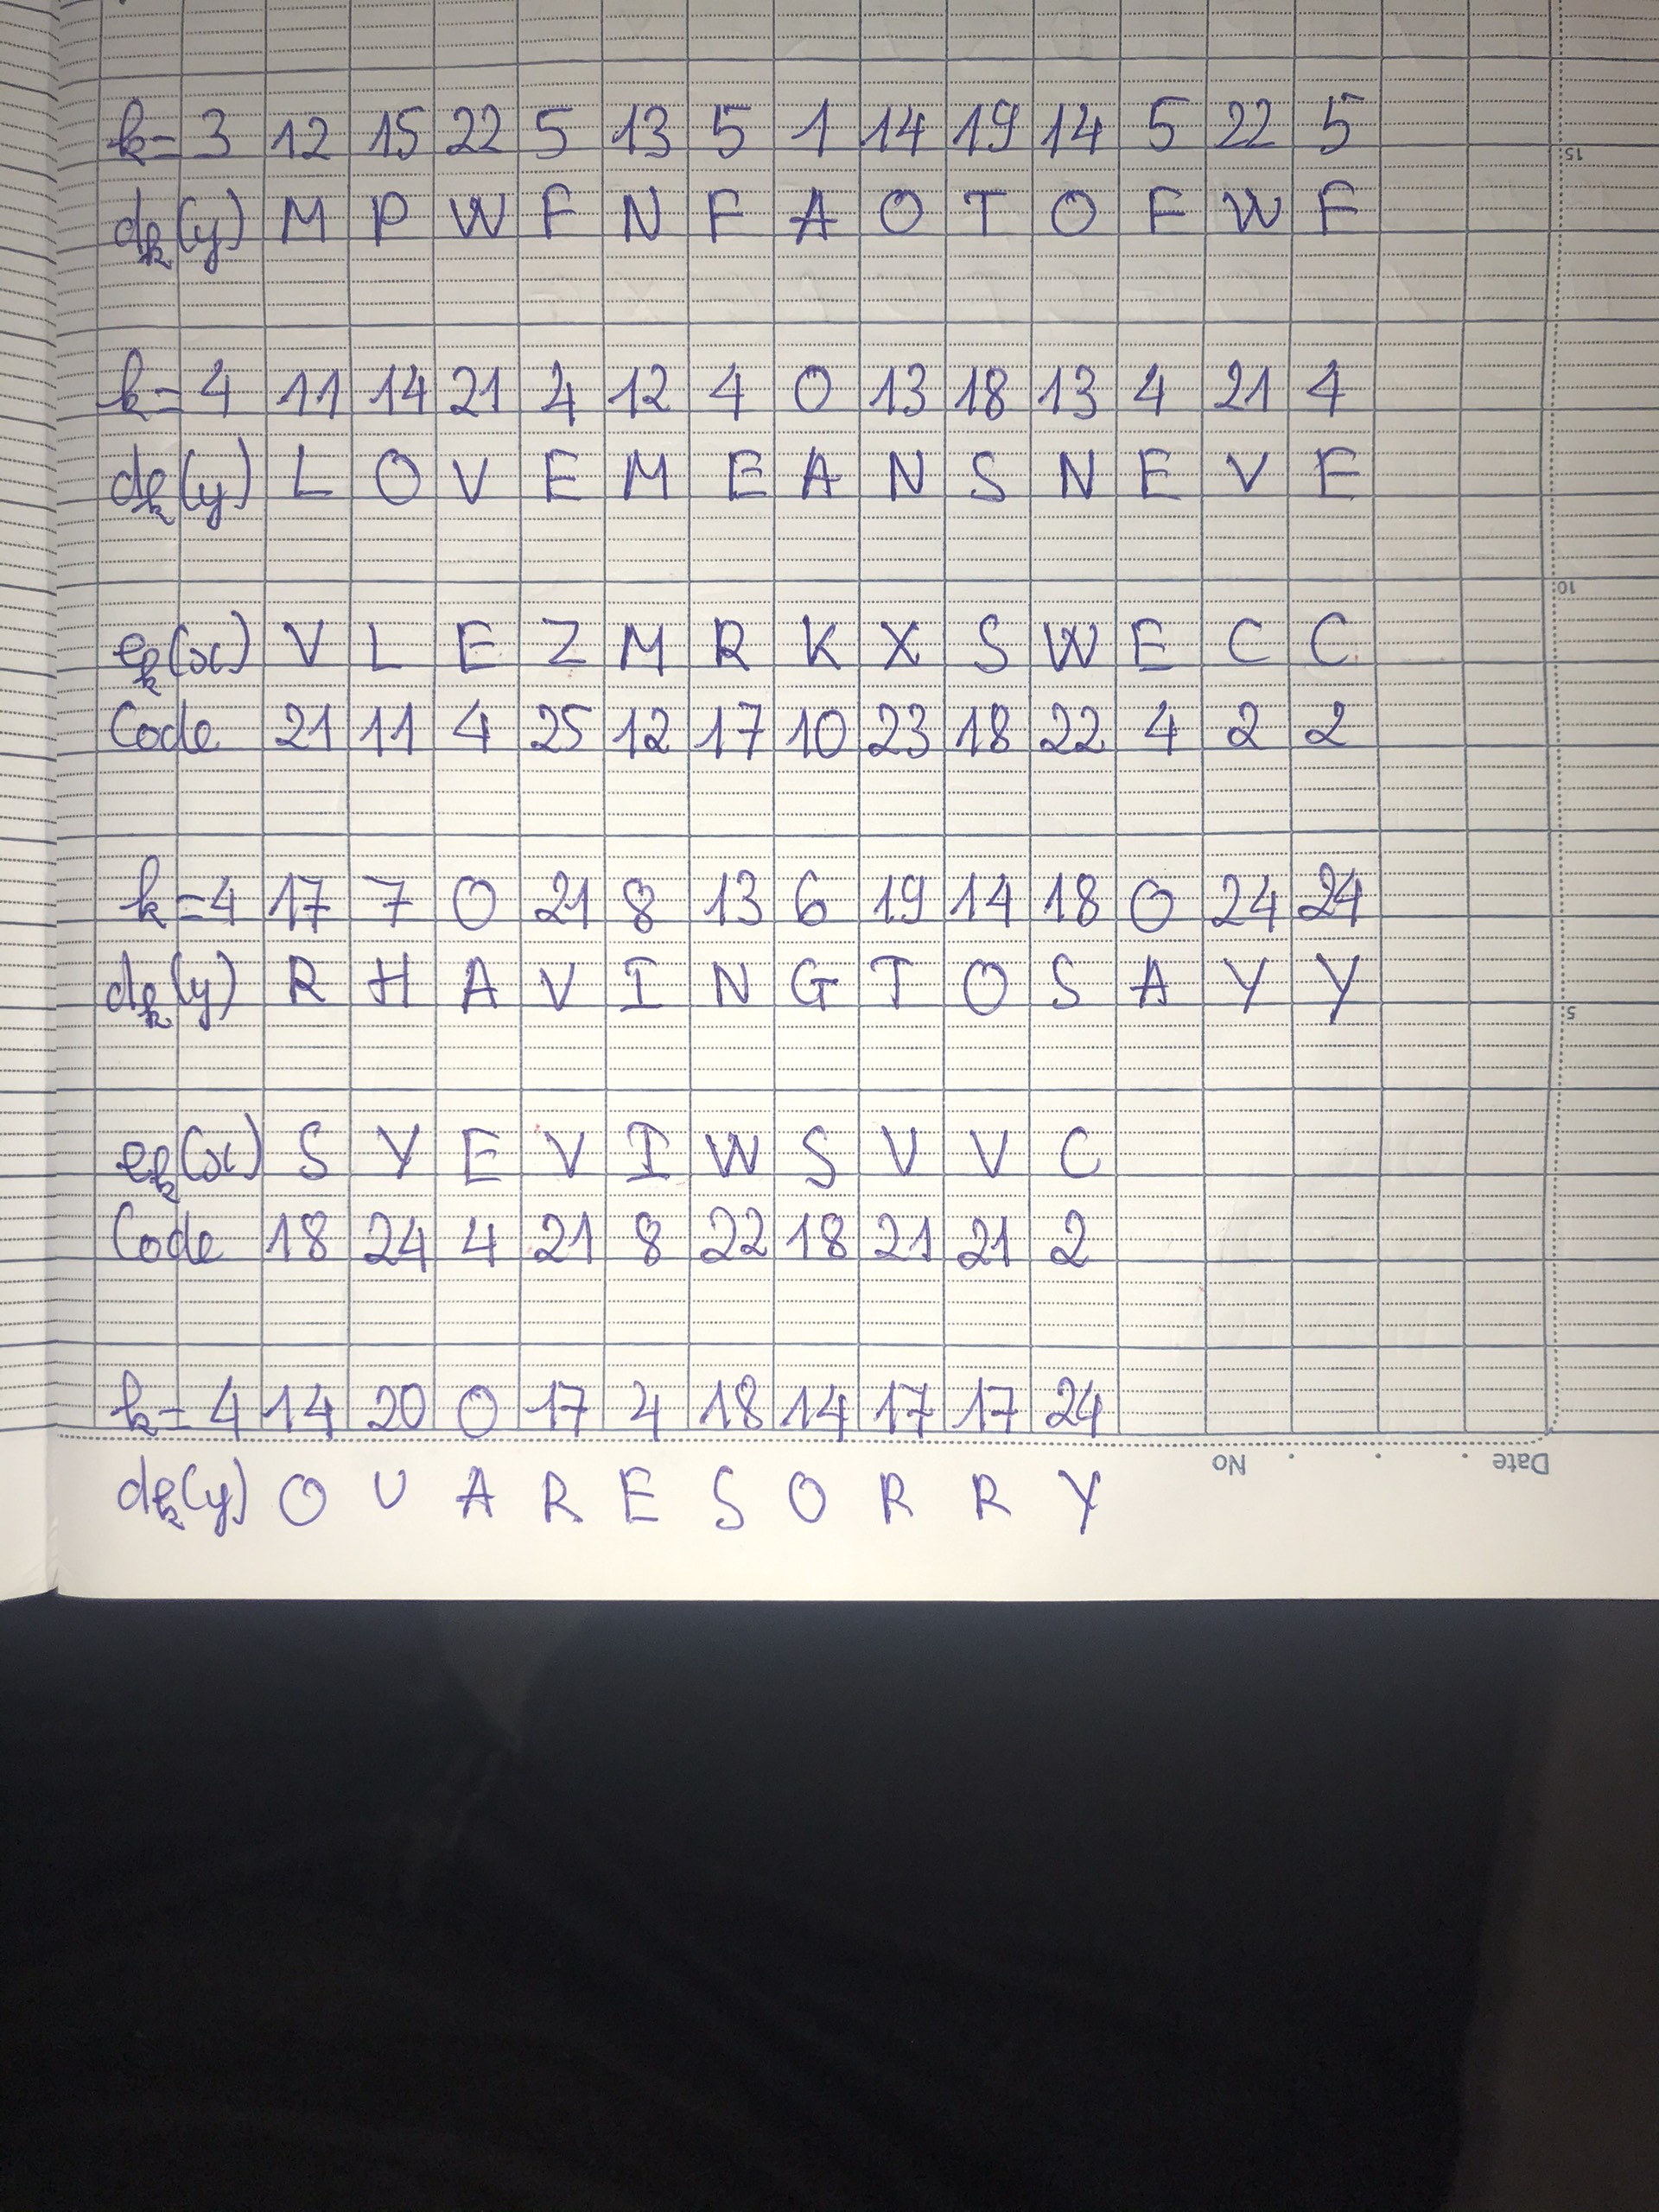 k=3 12 15 22 5 13 5 1 14 19 14 5 22 5
dk(y) M P W F N F A O T O F W F
k=4 11 14 21 4 12 4 0 13 18 13 4 21 4
dk(y) L O V E M E A N S N E V E
ek(x) V L E Z M R K X S W E C C
Code 21 11 4 25 12 17 10 23 18 22 4 2 2
k=4 17 7 0 21 8 13 6 19 14 18 0 24 24
dk(y) R H A V I N G T O S A Y Y
ek(x) S Y E V I W S V V C
Code 18 24 4 21 8 22 18 21 21 2
k=4 14 20 0 17 4 18 14 17 17 24
dk(y) O U A R E S O R R Y
15
10
5
Date . . .
No